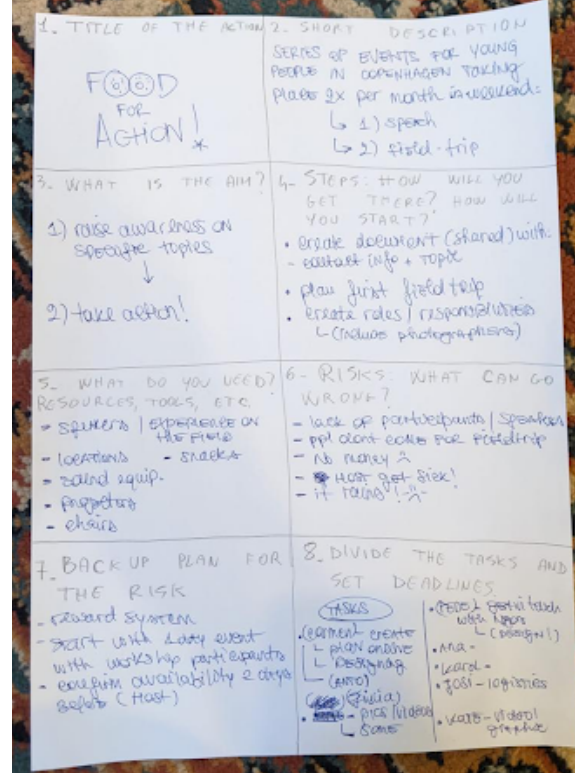 1. TITLE OF THE ACTION
FOOD
FOR
ACTION!
2. SHORT DESCRIPTION
SERIES OF EVENTS FOR YOUNG
PEOPLE IN COPENHAGEN TAKING
place 2x per month in weekend:
↳ 1) speach
↳ 2) field-trip
3. WHAT IS THE AIM?
1) raise awareness on
specific topics
↓
2) take action!
4- STEPS: HOW WILL YOU
GET THERE? HOW WILL
YOU START?
• create document (shared) with:
- contact info + topic
• plan first field trip
• create roles / responsibilities
↳ (include photographers)
5- WHAT DO YOU NEED?
RESOURCES, TOOLS, ETC.
- speakers / EXPERIENCE ON
THE FIELD
- locations - snacks
- sound equip.
- projectors
- chairs
6- RISKS: WHAT CAN GO
WRONG?
- lack of participants / SPEAKERS
- ppl dont come FOR fieldtrip
- No money
- Host get sick!
- it rains!
7- BACK UP PLAN FOR
THE RISK
- reward system
- start with 1 day event
with workshop participants
- confirm availability 2 days
before (Host)
8. DIVIDE THE TASKS AND
SET DEADLINES
TASKS
• create
↳ plan online
↳ Designing
- pics/videos
• get in touch
with
↳ (DESIGN!)
- logistics
- video/